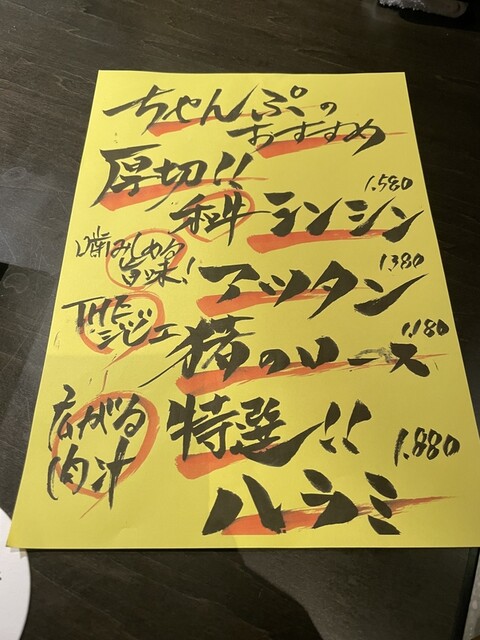 ちゃんぷの
おすすめ
厚切!!
和牛シンシン
1.580
噛みしめる
旨味!
アツタン
1.380
THE
ジビエ
猪のロース
1.180
広がる
肉汁
特選!!
ハラミ
1.880